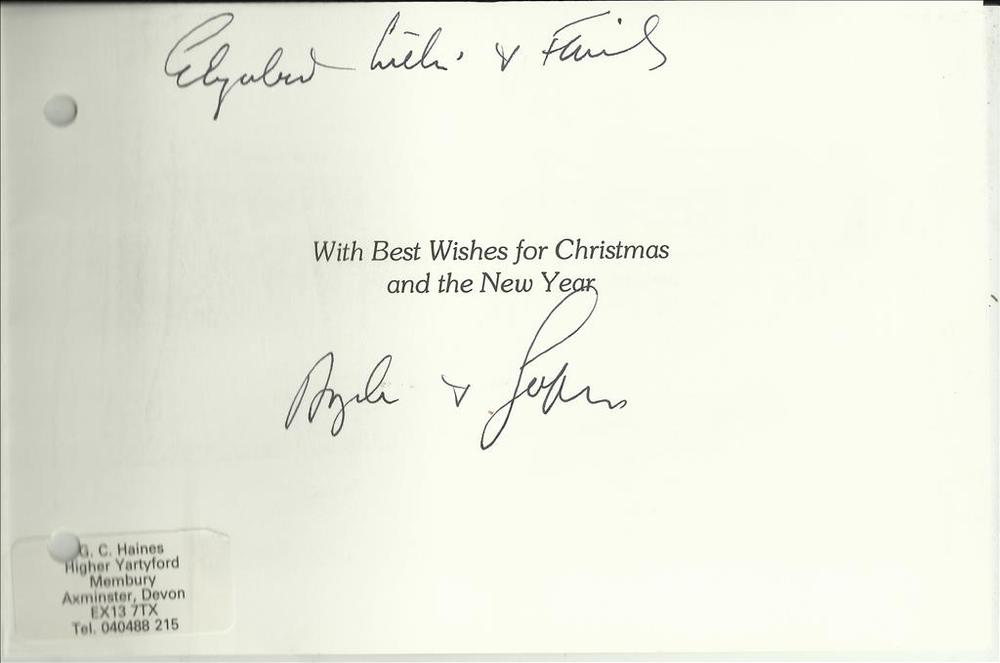 & Family
With Best Wishes for Christmas
and the New Year
&
G. C. Haines
Higher Yartyford
Membury
Axminster, Devon
EX13 7TX
Tel. 040488 215